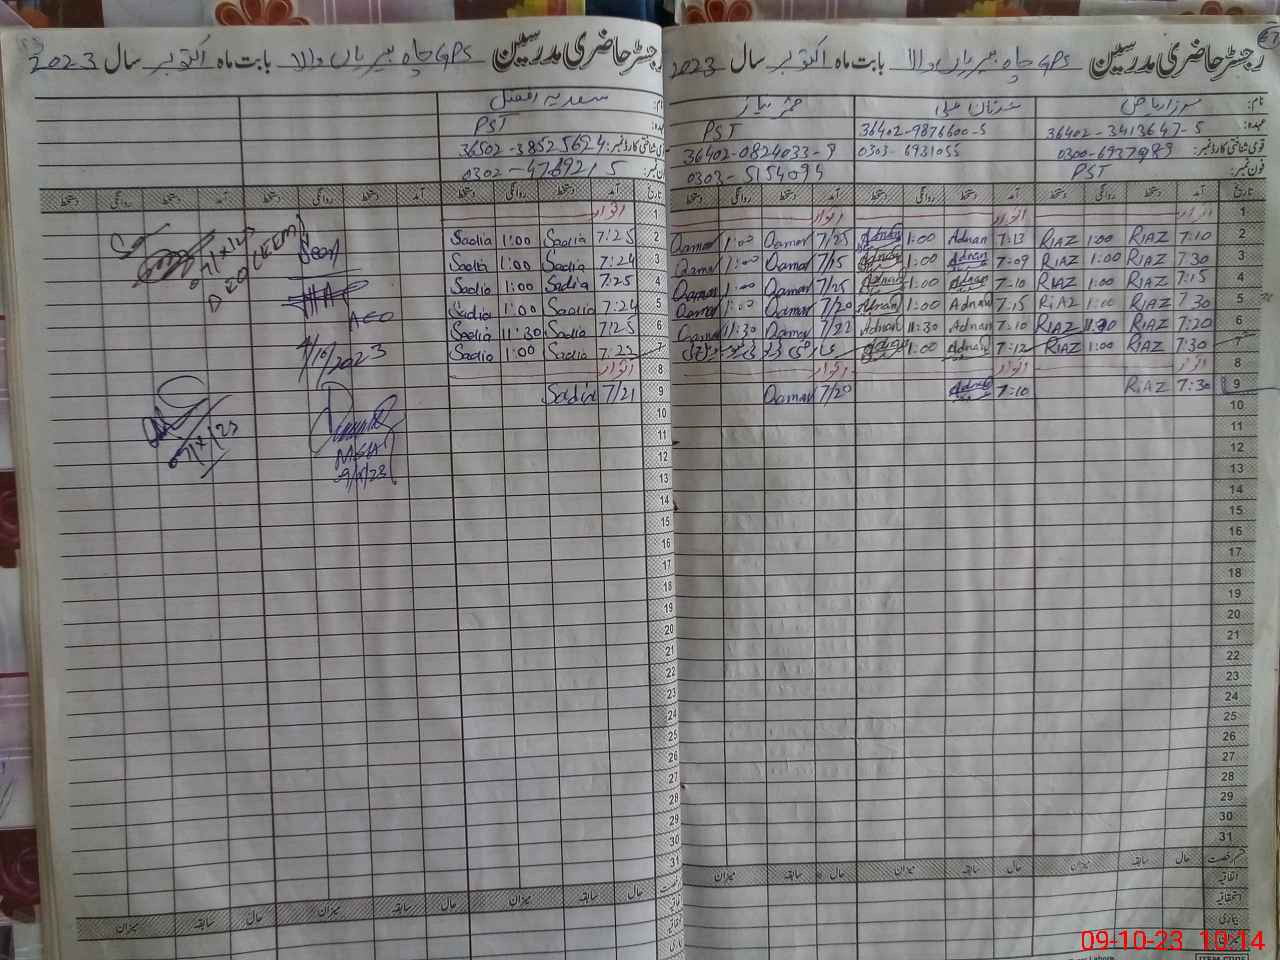 رجسٹر حاضری مدرسین GPS چاہ بیریاں والا بابت ماہ اکتوبر سال 2023
نام:
عہدہ: PST
قومی شناختی کارڈ نمبر: 36502-38525624
فون نمبر: 0302-4769215
تاریخ آمد دستخط روانگی دستخط آمد دستخط روانگی دستخط
1 اتوار
2 7:25 Sadia 1:00 Sadia
3 7:24 Sadia 1:00 Sadia
4 7:25 Sadia 1:00 Sadia
5 7:24 Sadia 1:00 Sadia
6 7/25 Sadia 11:30 Sadia
7 7:23 Sadia 1:00 Sadia
8 اتوار
9 7/21 Sadia
10
11
12
13
14
15
16
17
18
19
20
21
22
23
24
25
26
27
28
29
30
31
حال سابقہ میزان حال سابقہ میزان حال سابقہ میزان
DEO (EEM)
AEO
4/10/2023
MEA
9/x/23
رجسٹر حاضری مدرسین GPS چاہ بیریاں والا بابت ماہ اکتوبر سال 2023
نام: سرزا ریاض عدنان علی قمر نیاز
عہدہ: 36402-3413647-5 36402-9876600-5 PST
قومی شناختی کارڈ نمبر: 0300-6937989 0303-6931055 36402-0824033-9
فون نمبر: PST 0303-5154094
تاریخ آمد دستخط روانگی دستخط آمد دستخط روانگی دستخط آمد دستخط روانگی دستخط
1 اتوار اتوار اتوار
2 7:10 RIAZ 1:00 RIAZ 7:13 Adnan 1:00 Adnan 7/25 Qamar 1:00 Qamar
3 7:30 RIAZ 1:00 RIAZ 7:09 Adnan 1:00 Adnan 7/15 Qamar 1:00 Qamar
4 7:15 RIAZ 1:00 RIAZ 7:10 Adnan 1:00 Adnan 7/25 Qamar 1:00 Qamar
5 7:30 RIAZ 1:00 RIAZ 7:15 Adnan 1:00 Adnan 7/20 Qamar 1:00 Qamar
6 7:20 RIAZ 11:30 RIAZ 7:10 Adnan 11:30 Adnan 7/22 Qamar 11:30 Qamar
7 7:30 RIAZ 1:00 RIAZ 7:12 Adnan 1:00 Adnan
8 اتوار اتوار اتوار
9 7:30 RIAZ 7:10 Adnan 7/20 Qamar
10
11
12
13
14
15
16
17
18
19
20
21
22
23
24
25
26
27
28
29
30
31
حال سابقہ میزان حال سابقہ میزان حال سابقہ میزان
اتفاقیہ
استحقاقیہ
بیماری
09-10-23 10:14
ITEM CODE